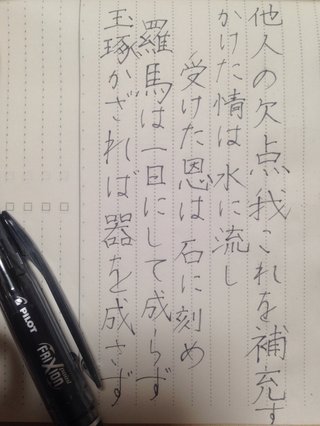 他人の欠点我これを補充す
かけた情は水に流し
受けた恩は石に刻め
羅馬は一日にして成らず
玉琢かざれば器を成さず
PILOT
FRIXION